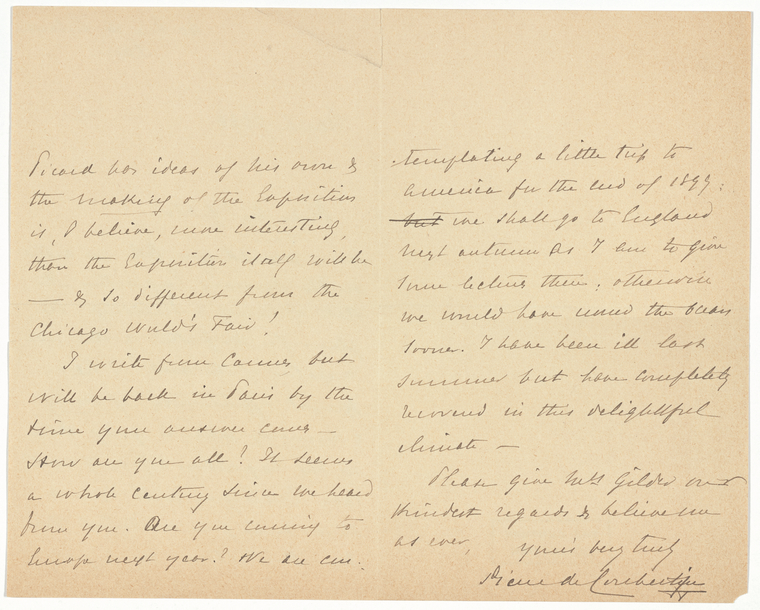 Picard has ideas of his own &
the making of the Exposition
is, I believe, more interesting,
than the Exposition itself will be
— & so different from the
Chicago World's Fair!
I write from Cannes but
will be back in Paris by the
time your answer comes —
How are you all? It seems
a whole century since we heard
from you. Are you coming to
Europe next year? We are con-
templating a little trip to
America for the end of 1899:
but we shall go to England
next autumn as I am to give
some lectures there; otherwise
we would have crossed the Ocean
sooner. I have been ill last
summer but have completely
recovered in this delightful
climate —
Please give Mrs Gilder our
kindest regards & believe me
as ever, yours very truly
Pierre de Coubertin